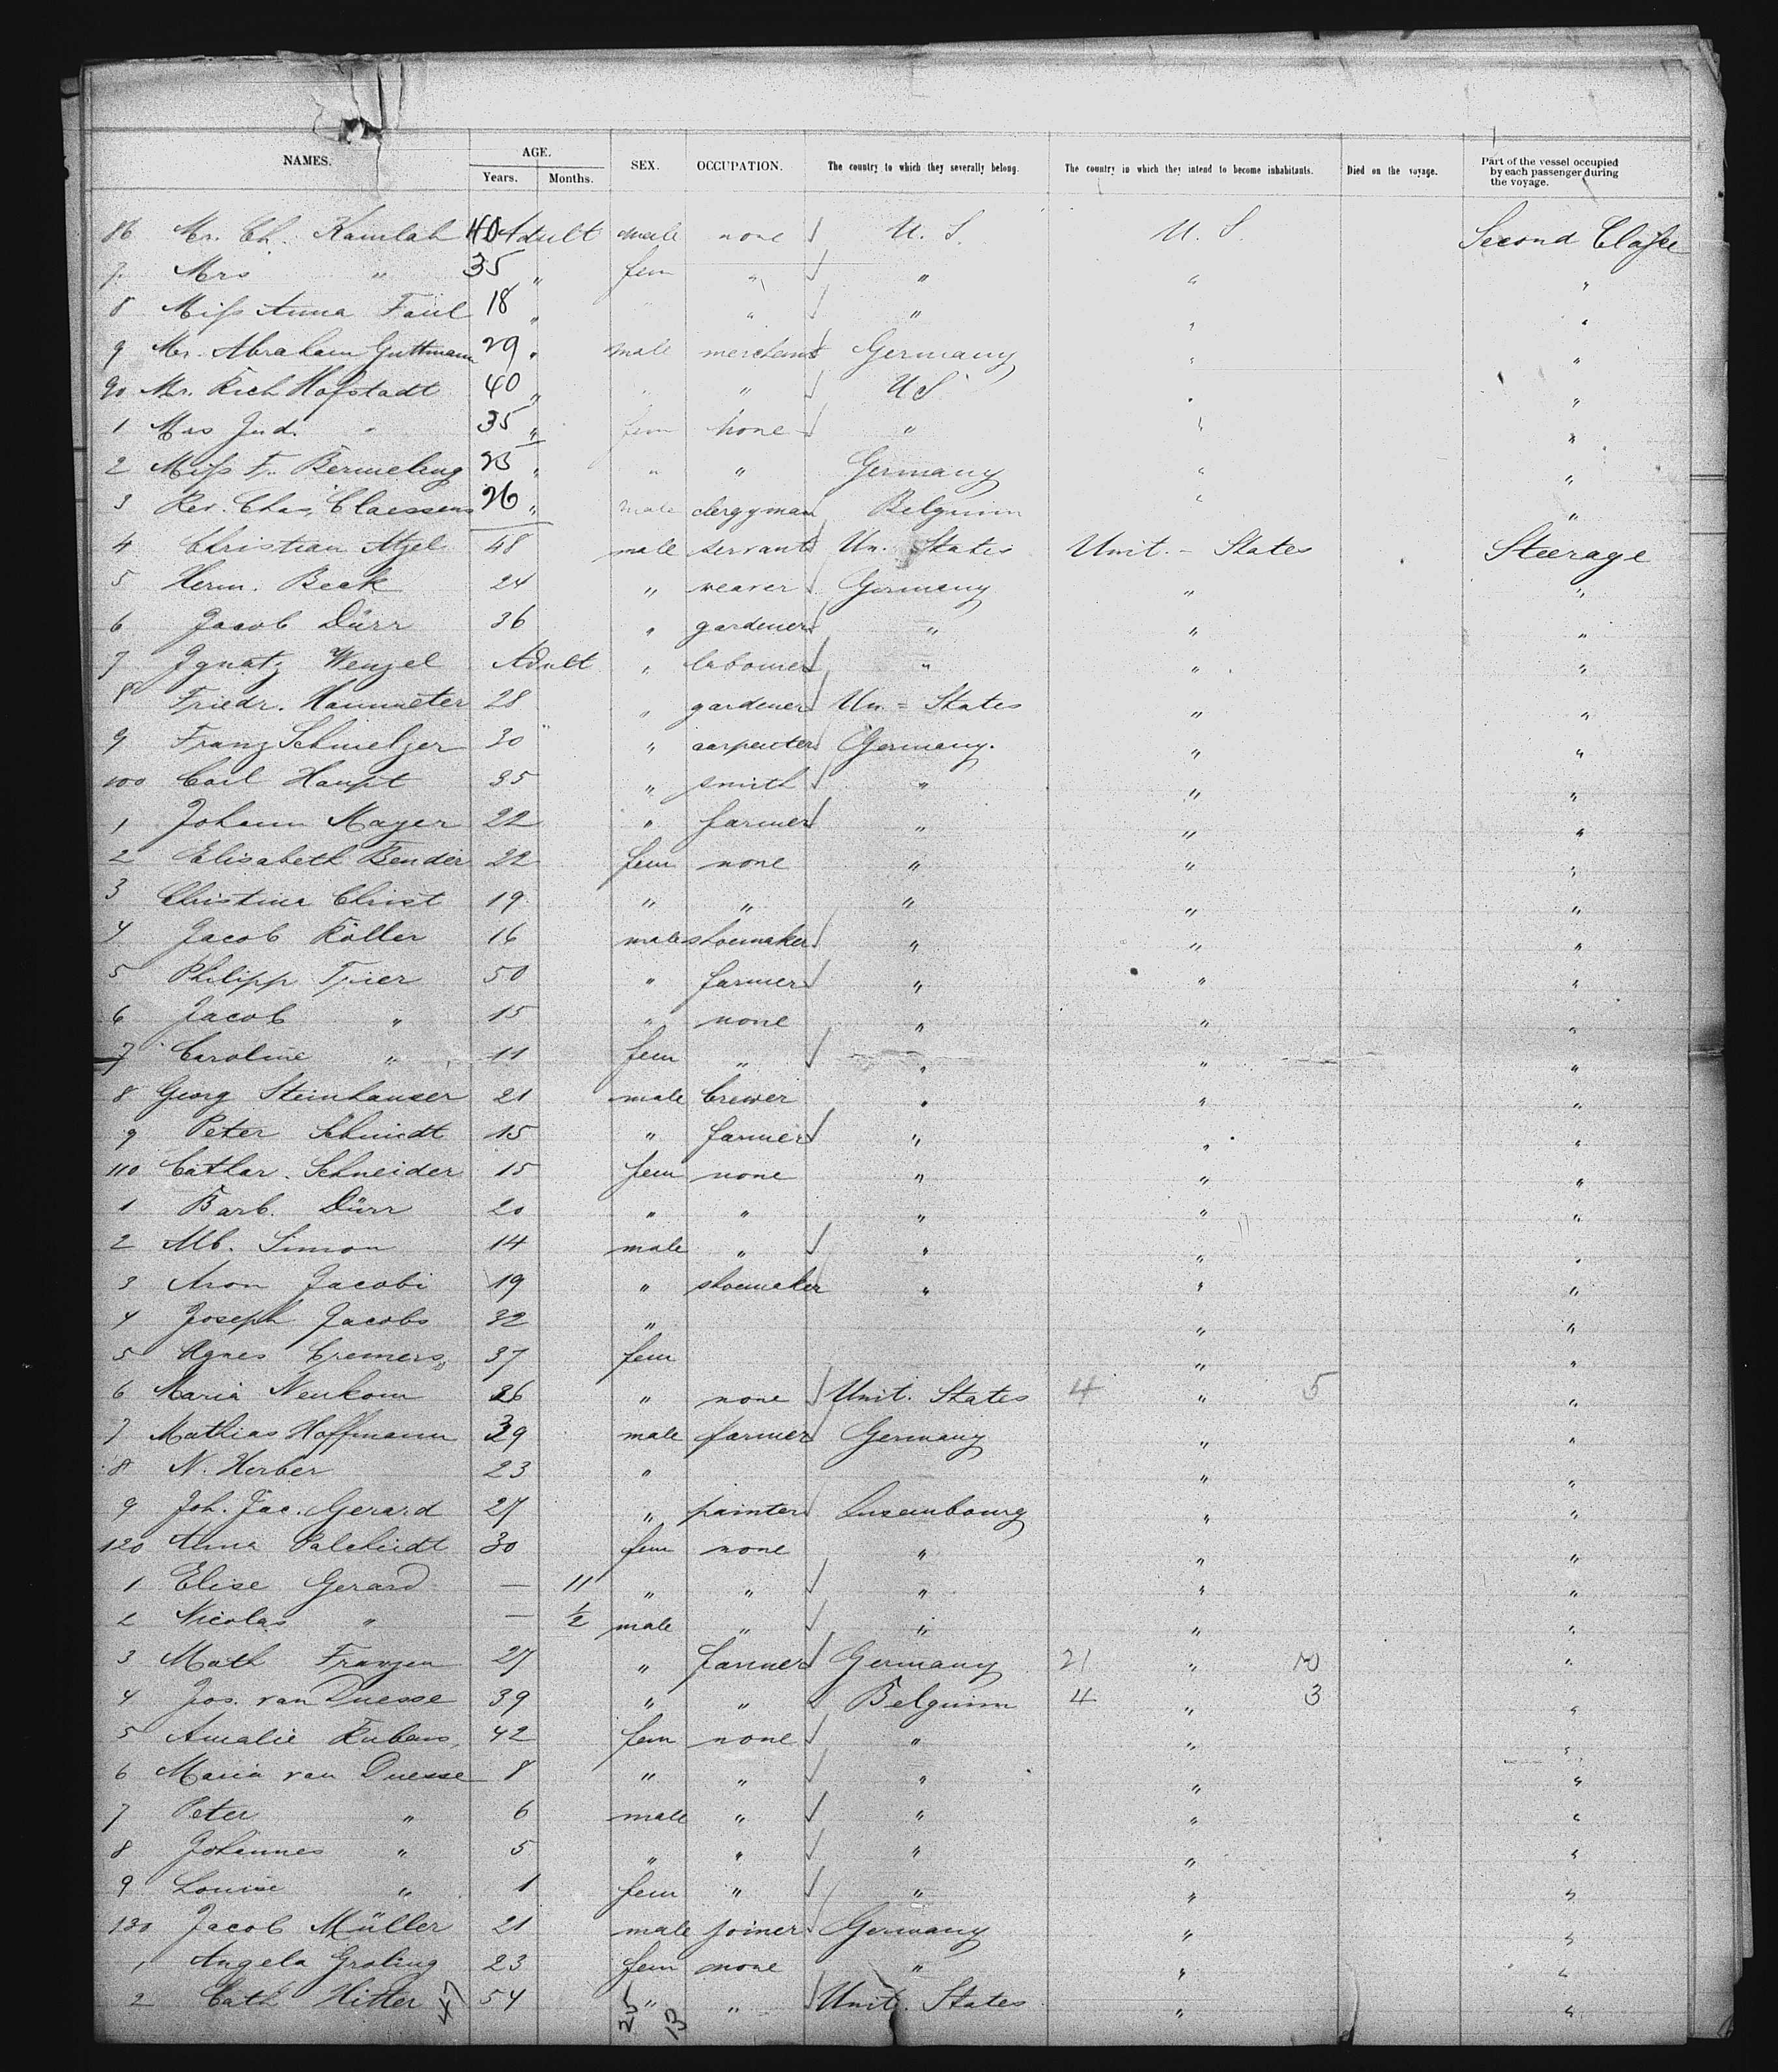 NAMES. AGE. SEX. OCCUPATION. The country to which they severally belong. The country in which they intend to become inhabitants. Died on the voyage. Part of the vessel occupied by each passenger during the voyage.
Years. Months.
86 Mr. Ch. Kamlah 40 Adult male none U. S. U. S. Second Classe
7 Mrs " 35 " fem " " " "
8 Miss Anna Faul 18 " " " " " "
9 Mr. Abraham Guttmann 29 " male merchant Germany " "
90 Mr. Rich Hofstadt 40 " " " U S " "
1 Mrs Jud. " 35 " fem none " " "
2 Miss F. Bermeling 23 " " " Germany " "
3 Rev. Chas. Claessens 26 " male clergyman Belguim " "
4 Christian Atzel 48 male servant Un. States Unit. - States Steerage
5 Herm. Beck 24 " weaver Germany " "
6 Jacob Dürr 36 " gardener " " "
7 Ignatz Wenzel Adult " labourer " " "
8 Friedr. Hammeter 28 " gardener Un. = States " "
9 Franz Schmelzer 30 " carpenter Germany. " "
100 Carl Haupt 35 " smith " " "
1 Johann Mayer 22 " farmer " " "
2 Elisabeth Bender 22 fem none " " "
3 Christina Christ 19 " " " " "
4 Jacob Köller 16 male shoemaker " " "
5 Philipp Trier 50 " farmer " " "
6 Jacob " 15 " none " " "
7 Caroline " 11 fem " " " "
8 Georg Steinhauser 21 male brewer " " "
9 Peter Schmidt 15 " farmer " " "
110 Cathar. Schneider 15 fem none " " "
1 Barb. Dürr 20 " " " " "
2 Alb. Simon 14 male " " " "
3 Aron Jacobi 19 " shoemaker " " "
4 Joseph Jacobs 32 " " "
5 Agnes Cremers 37 fem " "
6 Maria Neukom 36 " none Unit. States 4 " 5 "
7 Mathias Hoffmann 39 male farmer Germany " "
8 N. Herber 23 " " "
9 Joh. Jac. Gerard 27 " painter Luxembourg " "
120 Anna 30 fem none " " "
1 Elise Gerard — 11 " " " " "
2 Nicolas " — ½ male " " " "
3 Math Franzen 27 " farmer Germany 21 " 10 "
4 Jos. van Duesse 39 " " Belguim 4 " 3 "
5 Amalie Rubens 42 fem none " " "
6 Maria van Duesse 8 " " " " "
7 Peter " 6 male " " " "
8 Johannes " 5 " " " " "
9 Louise " 1 fem " " " "
130 Jacob Müller 21 male joiner Germany " "
1 Angela Groling 23 fem none " " "
2 Cath Hitter 47 54 " " Unit. States " "
25 13